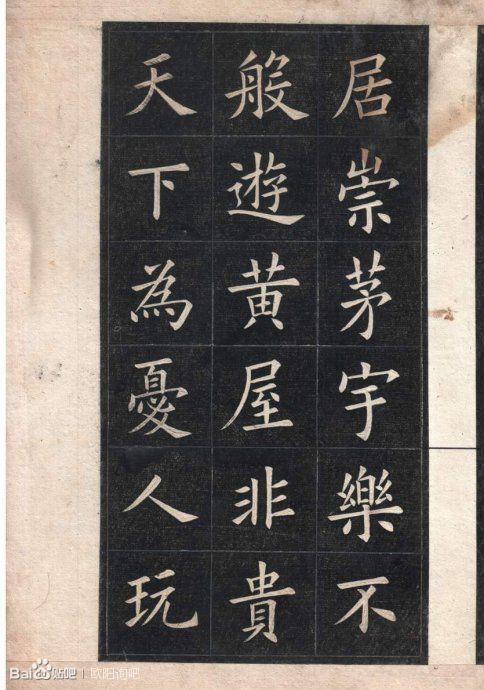 居崇茅宇樂不
般遊黄屋非貴
天下為憂人玩
Bai 贴吧 | 欧阳询吧